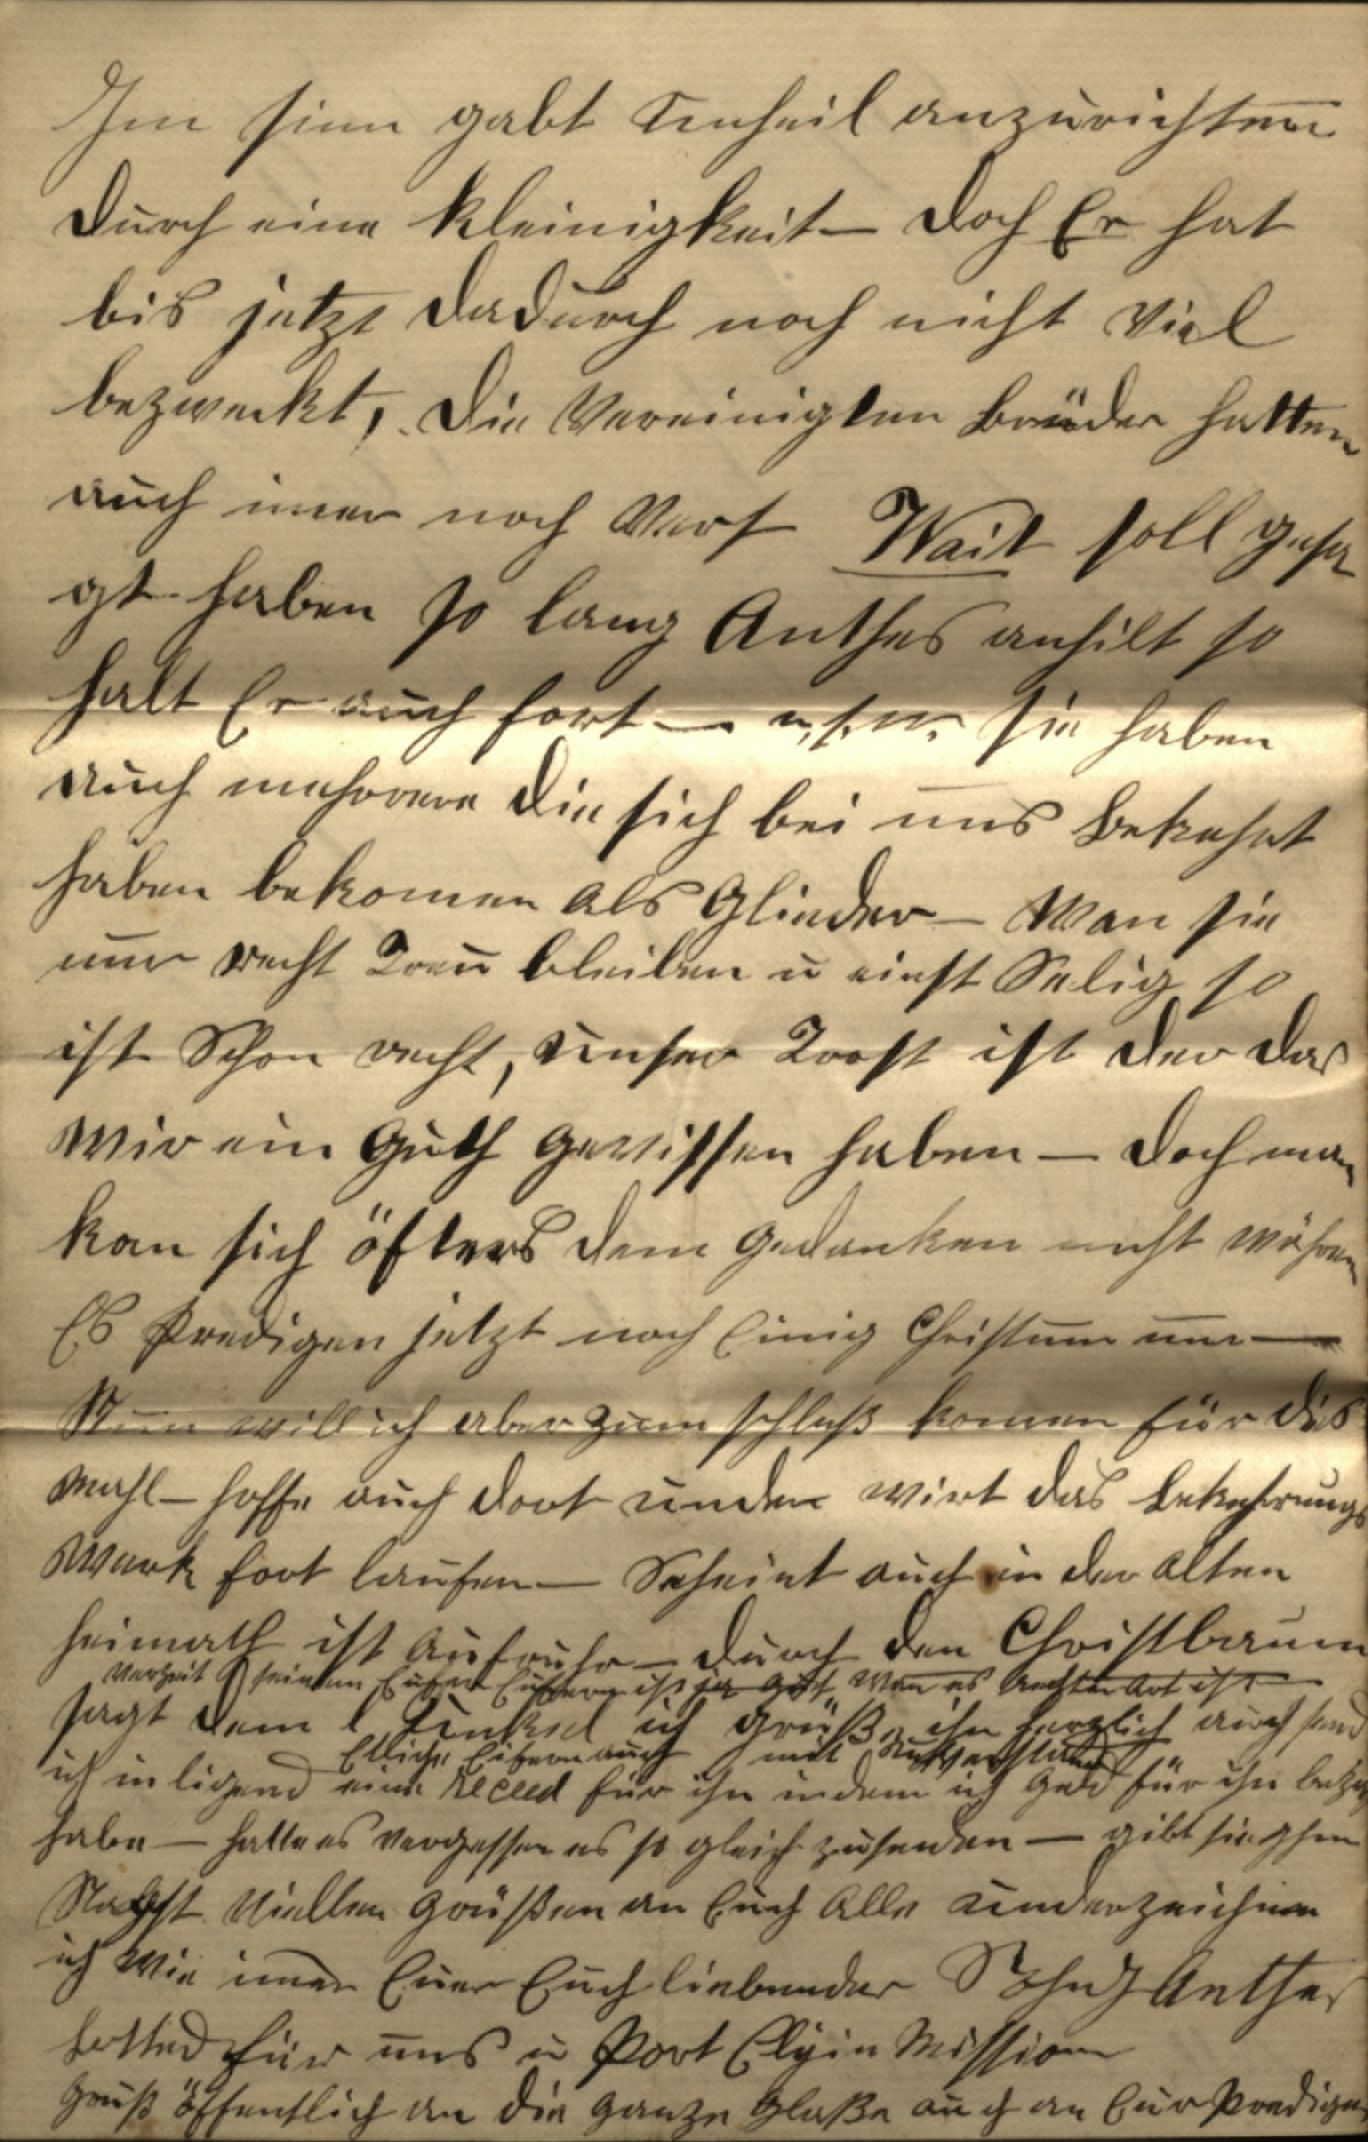 Im sinn gabt Unheil anzurichten
durch eine Kleinigkeit — doch Er hat
bis jetzt dadurch noch nicht Viel
bezweckt, die Vereinigten Brüder hatten
auch imer noch Vers Wait soll gesa
gt haben so lang Anthes anhilt so
halt Er auch fort — u.s.w. sie haben
auch mehrere die sich bei uns Bekehrt
haben bekomen als Glieder — Wan sie
nur recht Treu bleiben u einst Selig so
ist Schon recht, Unser Trost ist der das
Wir ein Guth Gewissen haben — doch man
kan sich öfters dem Gedanken nicht währen
Es Predigen jetzt noch Einig Christum nur —
Nun will ich aber zum schluß komen für dies
Mahl — hoffe auch dort unden wirt das Bekehrungs
Werk fort laufen — Scheint auch in der alten
heimath ist Aufruhr — durch den Christbaum
Eifern ist ja gut Wan es rechter Art ist —
sagt dem l ich grüße ihn herzlich auch send
Etliche Eifern auch mit Unverstand
ich inligend eine Receed für ihn indem ich Geld für ihn
habe — hatte es Vergessen es so gleich zusenden — gibt sie ihm
Nebst Viellen Grüßen an Euch Alle Underzeichne
ich Wie imer Euer Euch liebender Sohn J Anthes
Betted für uns u Port Elgin Mission
Gruß öffentlich an die Ganze Glaße auch an Eur Prediger